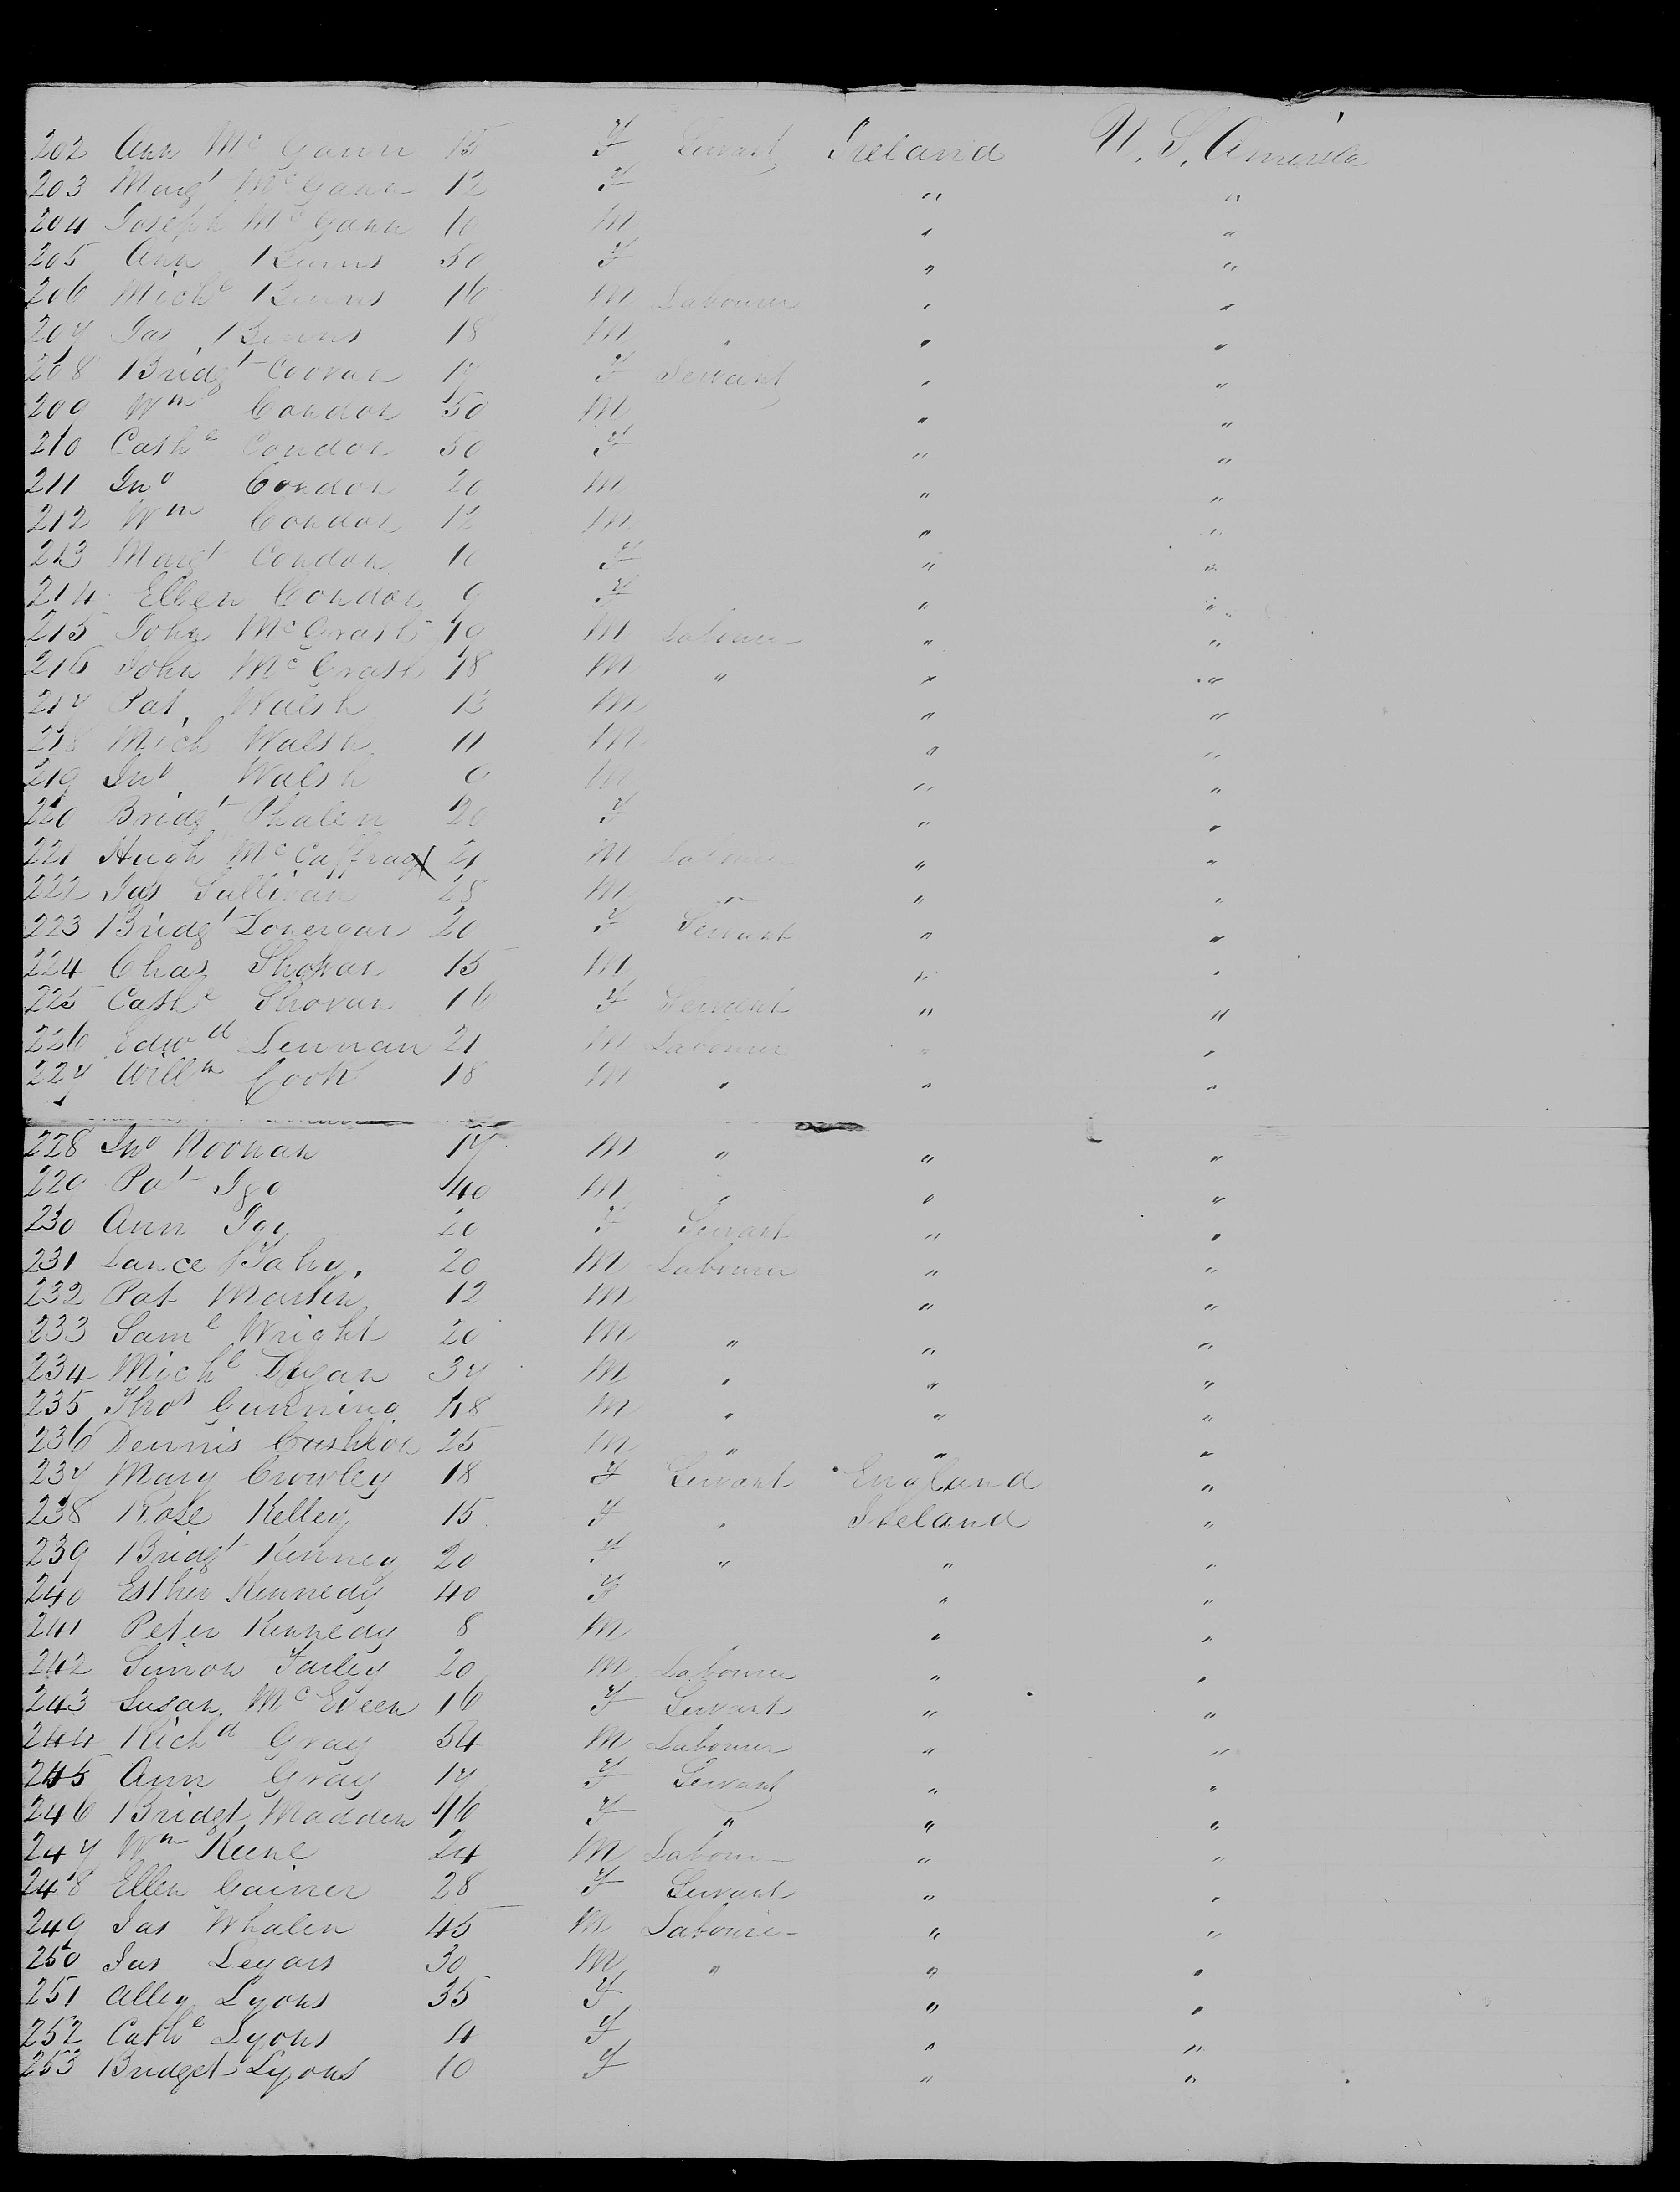 202 Ann McGann 15 F Servant Ireland U. S. America
203 Margt McGann 12 F " "
204 Joseph McGann 10 M " "
205 Ann Burns 50 F " "
206 Michl Burns 16 M Labourer " "
207 Jas Burns 18 M " " "
208 Bridgt Cooran 17 F Servant " "
209 Wm Condon 50 M " "
210 Cathe Condon 50 F " "
211 Jno Condon 20 M " "
212 Wm Condon 12 M " "
213 Margt Condon 10 F " "
214 Ellen Condon 9 F " "
215 John McGrath M Labourer " "
216 John McGrath 18 M " " "
217 Pat Walsh 13 M " "
218 Mich Walsh 11 M " "
219 Jno Walsh 9 M " "
220 Bridgt Phalen 20 F " "
221 Hugh McCaffray 21 M Labourer " "
222 Jas Sullivan 28 M " " "
223 Bridgt Lonergan 20 F Servant " "
224 Chas Shovan 15 M " "
225 Cathe Shovan 16 F Servant " "
226 Edwd Lennan 21 M Labourer " "
227 Willm Cook 18 M " " "
228 Jno Noonan 17 M " " "
229 Pat Igo 40 M " " "
230 Ann Igo 20 F Servant " "
231 Lance Fahy 20 M Labourer " "
232 Pat Martin 12 M " "
233 Saml Wright 20 M " " "
234 Michl Dugan 37 M " " "
235 Thos Gunning 48 M " " "
236 Dennis Cushion 25 M " " "
237 Mary Crowley 18 F Servant England "
238 Rose Kelley 15 F " Ireland "
239 Bridgt Kenney 20 F " " "
240 Esther Kennedy 40 F " "
241 Peter Kennedy 8 M " "
242 Simon Farley 20 M Labourer " "
243 Susan McEveen 16 F Servant " "
244 Richd Gray 54 M Labourer " "
245 Ann Gray 17 F Servant " "
246 Bridgt Madden 46 F " " "
247 Wm Keene 24 M Labourer " "
248 Ellen Gainer 28 F Servant " "
249 Jas Whalen 45 M Labourer " "
250 Jas Leyons 30 M " " "
251 Alley Lyons 35 F " "
252 Cathe Lyons 4 F " "
253 Bridget Lyons 10 F " "